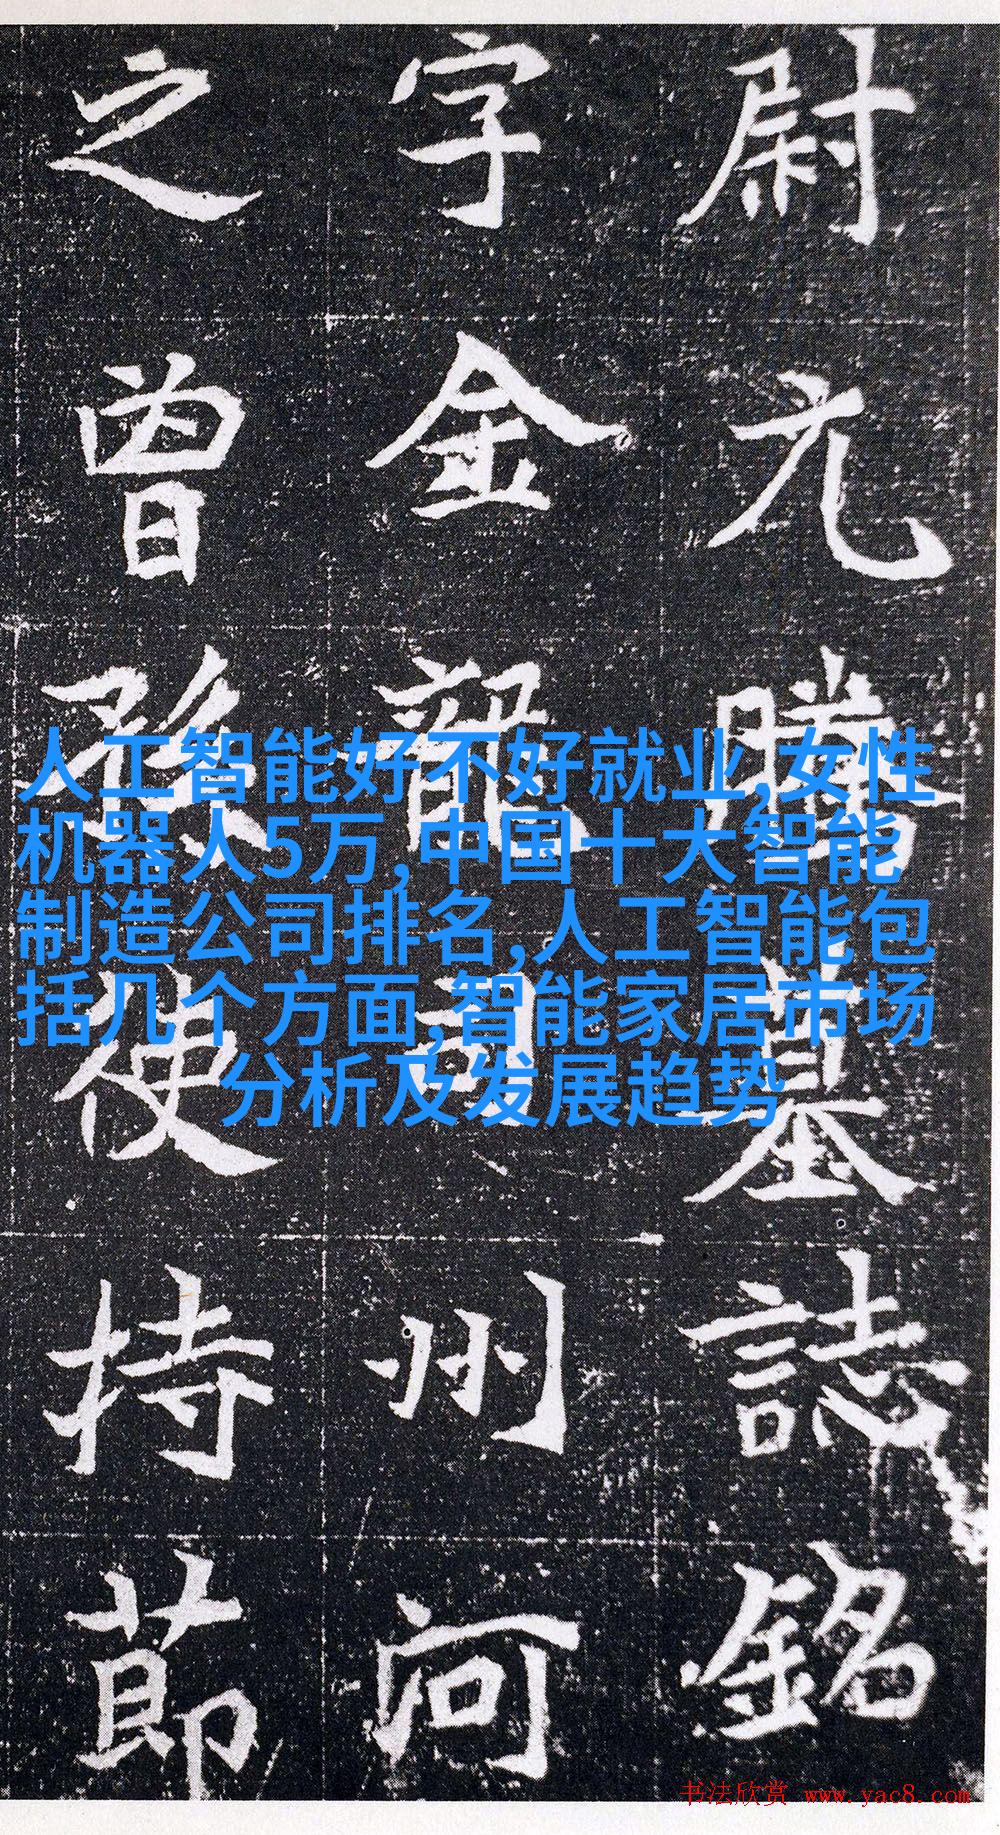 尉元騰墓誌銘
字金龍司州河
之曾孫使持節
人工智能好不好就业,女性
机器人5万,中国十大智能
制造公司排名,人工智能包
括几个方面,智能家居市场
分析及发展趋势
书法欣赏 www.yac8.com